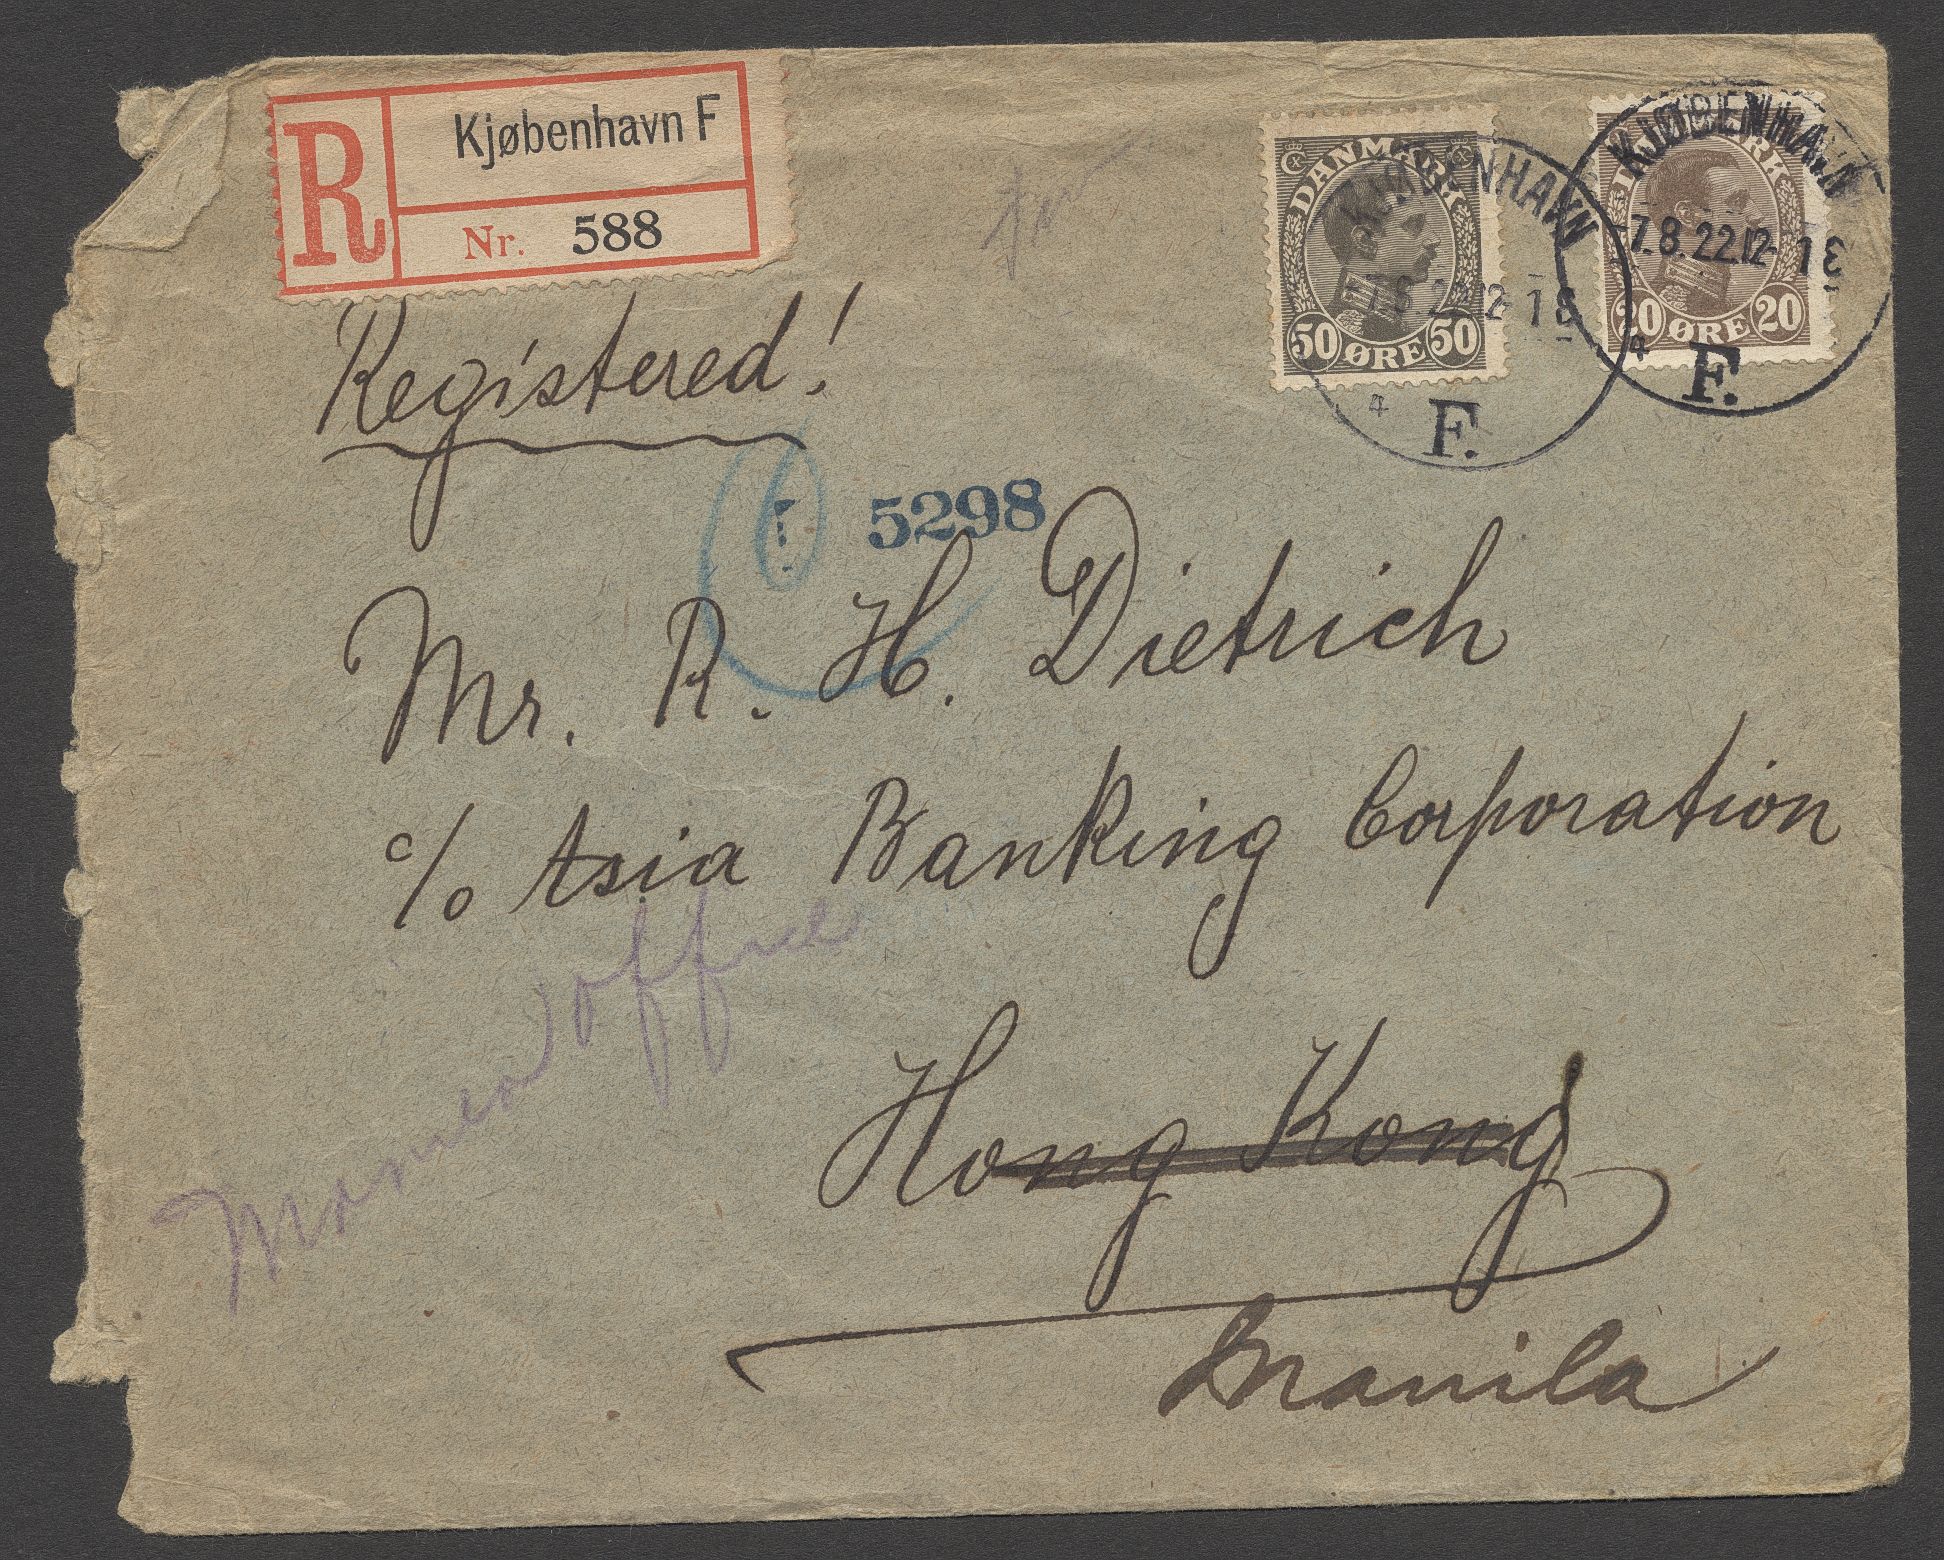 R Kjøbenhavn F
Nr. 588
DANMARK
50 ØRE 50
KJØBENHAVN
7.8.22.12-1 E
4
F.
20 ØRE 20
KJØBENHAVN
7.8.22.12-1 E
4
F.
Registered!
5298
Mr. R. H. Dietrich
c/o Asia Banking Corporation
office
Hong Kong
Manila